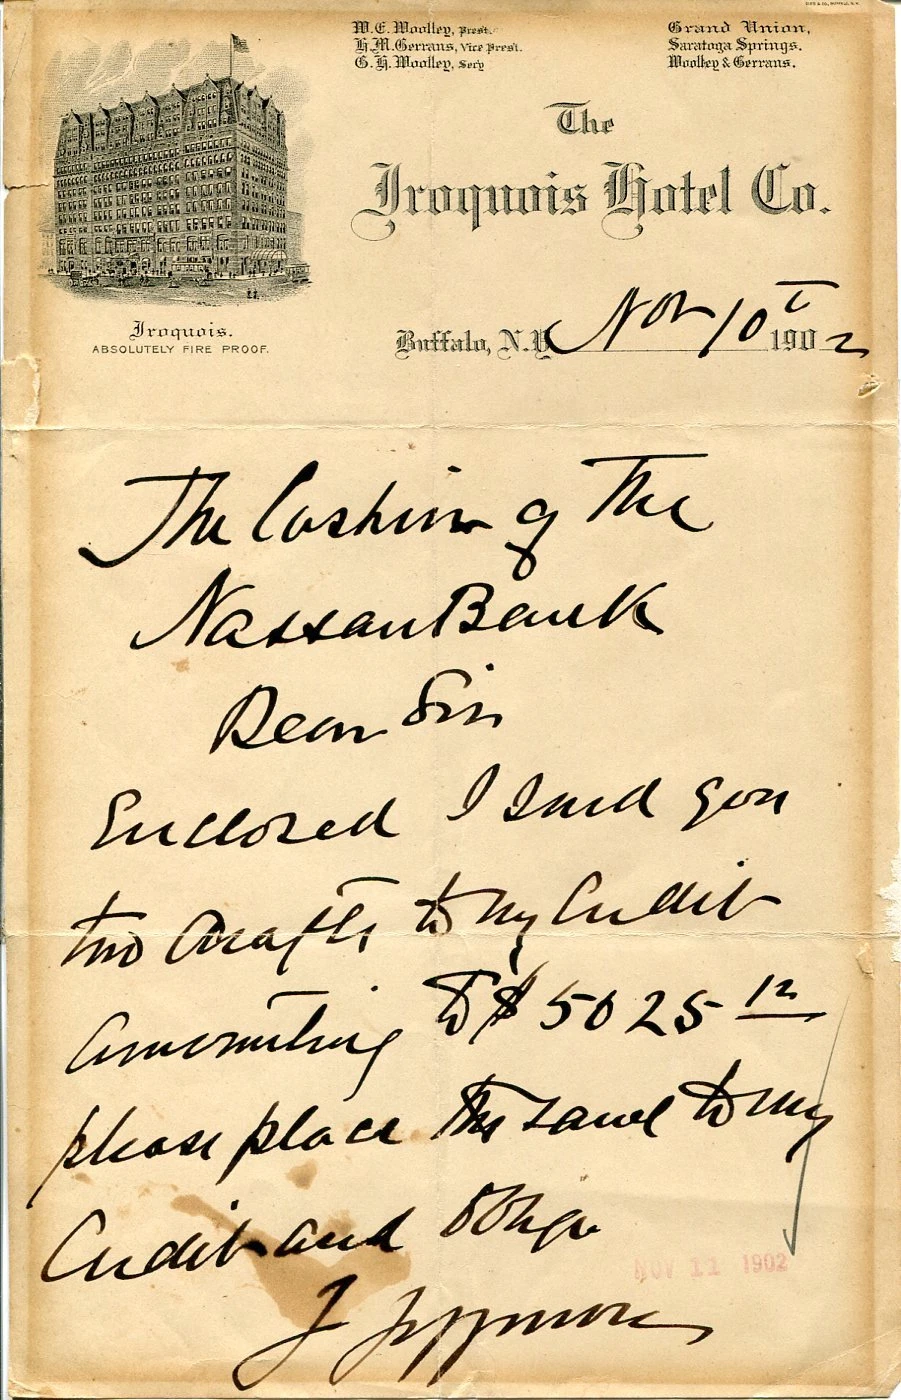 W.E. Woolley, Prest.
H.M. Gerrans, Vice Prest.
G.H. Woolley, Secy
Grand Union,
Saratoga Springs.
Woolley & Gerrans.
The
Iroquois Hotel Co.
Iroquois.
ABSOLUTELY FIRE PROOF.
Buffalo, N.Y. Nov 10th 1902
The Cashier of The
Nassau Bank
Dear Sir
Enclosed I send you
two drafts to my Credit
amounting to $5025 12
please place the same to my
Credit and oblige
J
NOV 11 1902